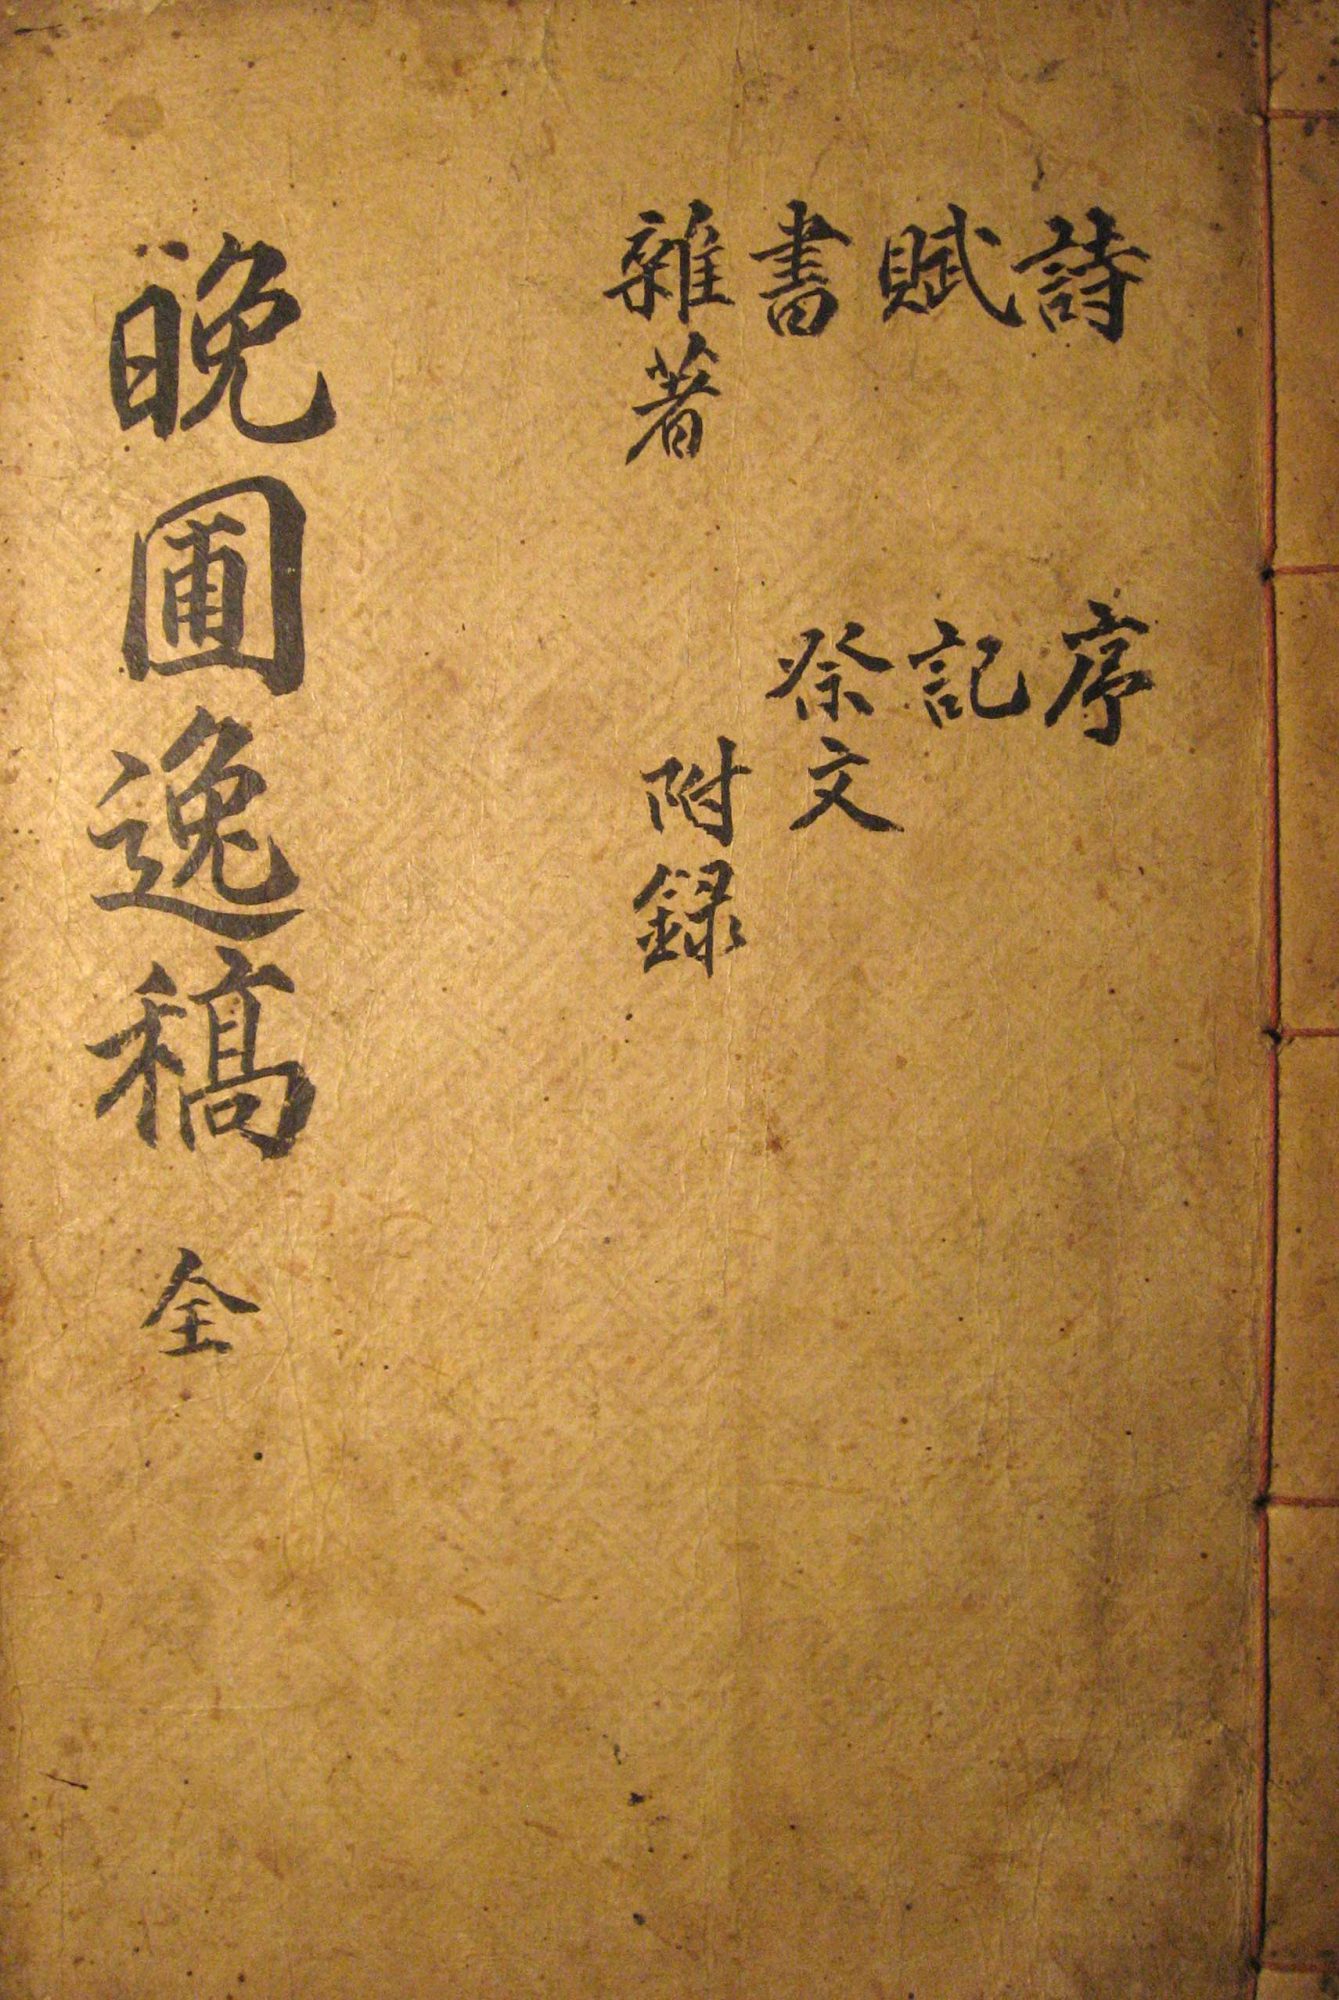 詩
賦
書
雜著
序
記
祭文
附録
晚圃逸稿 全